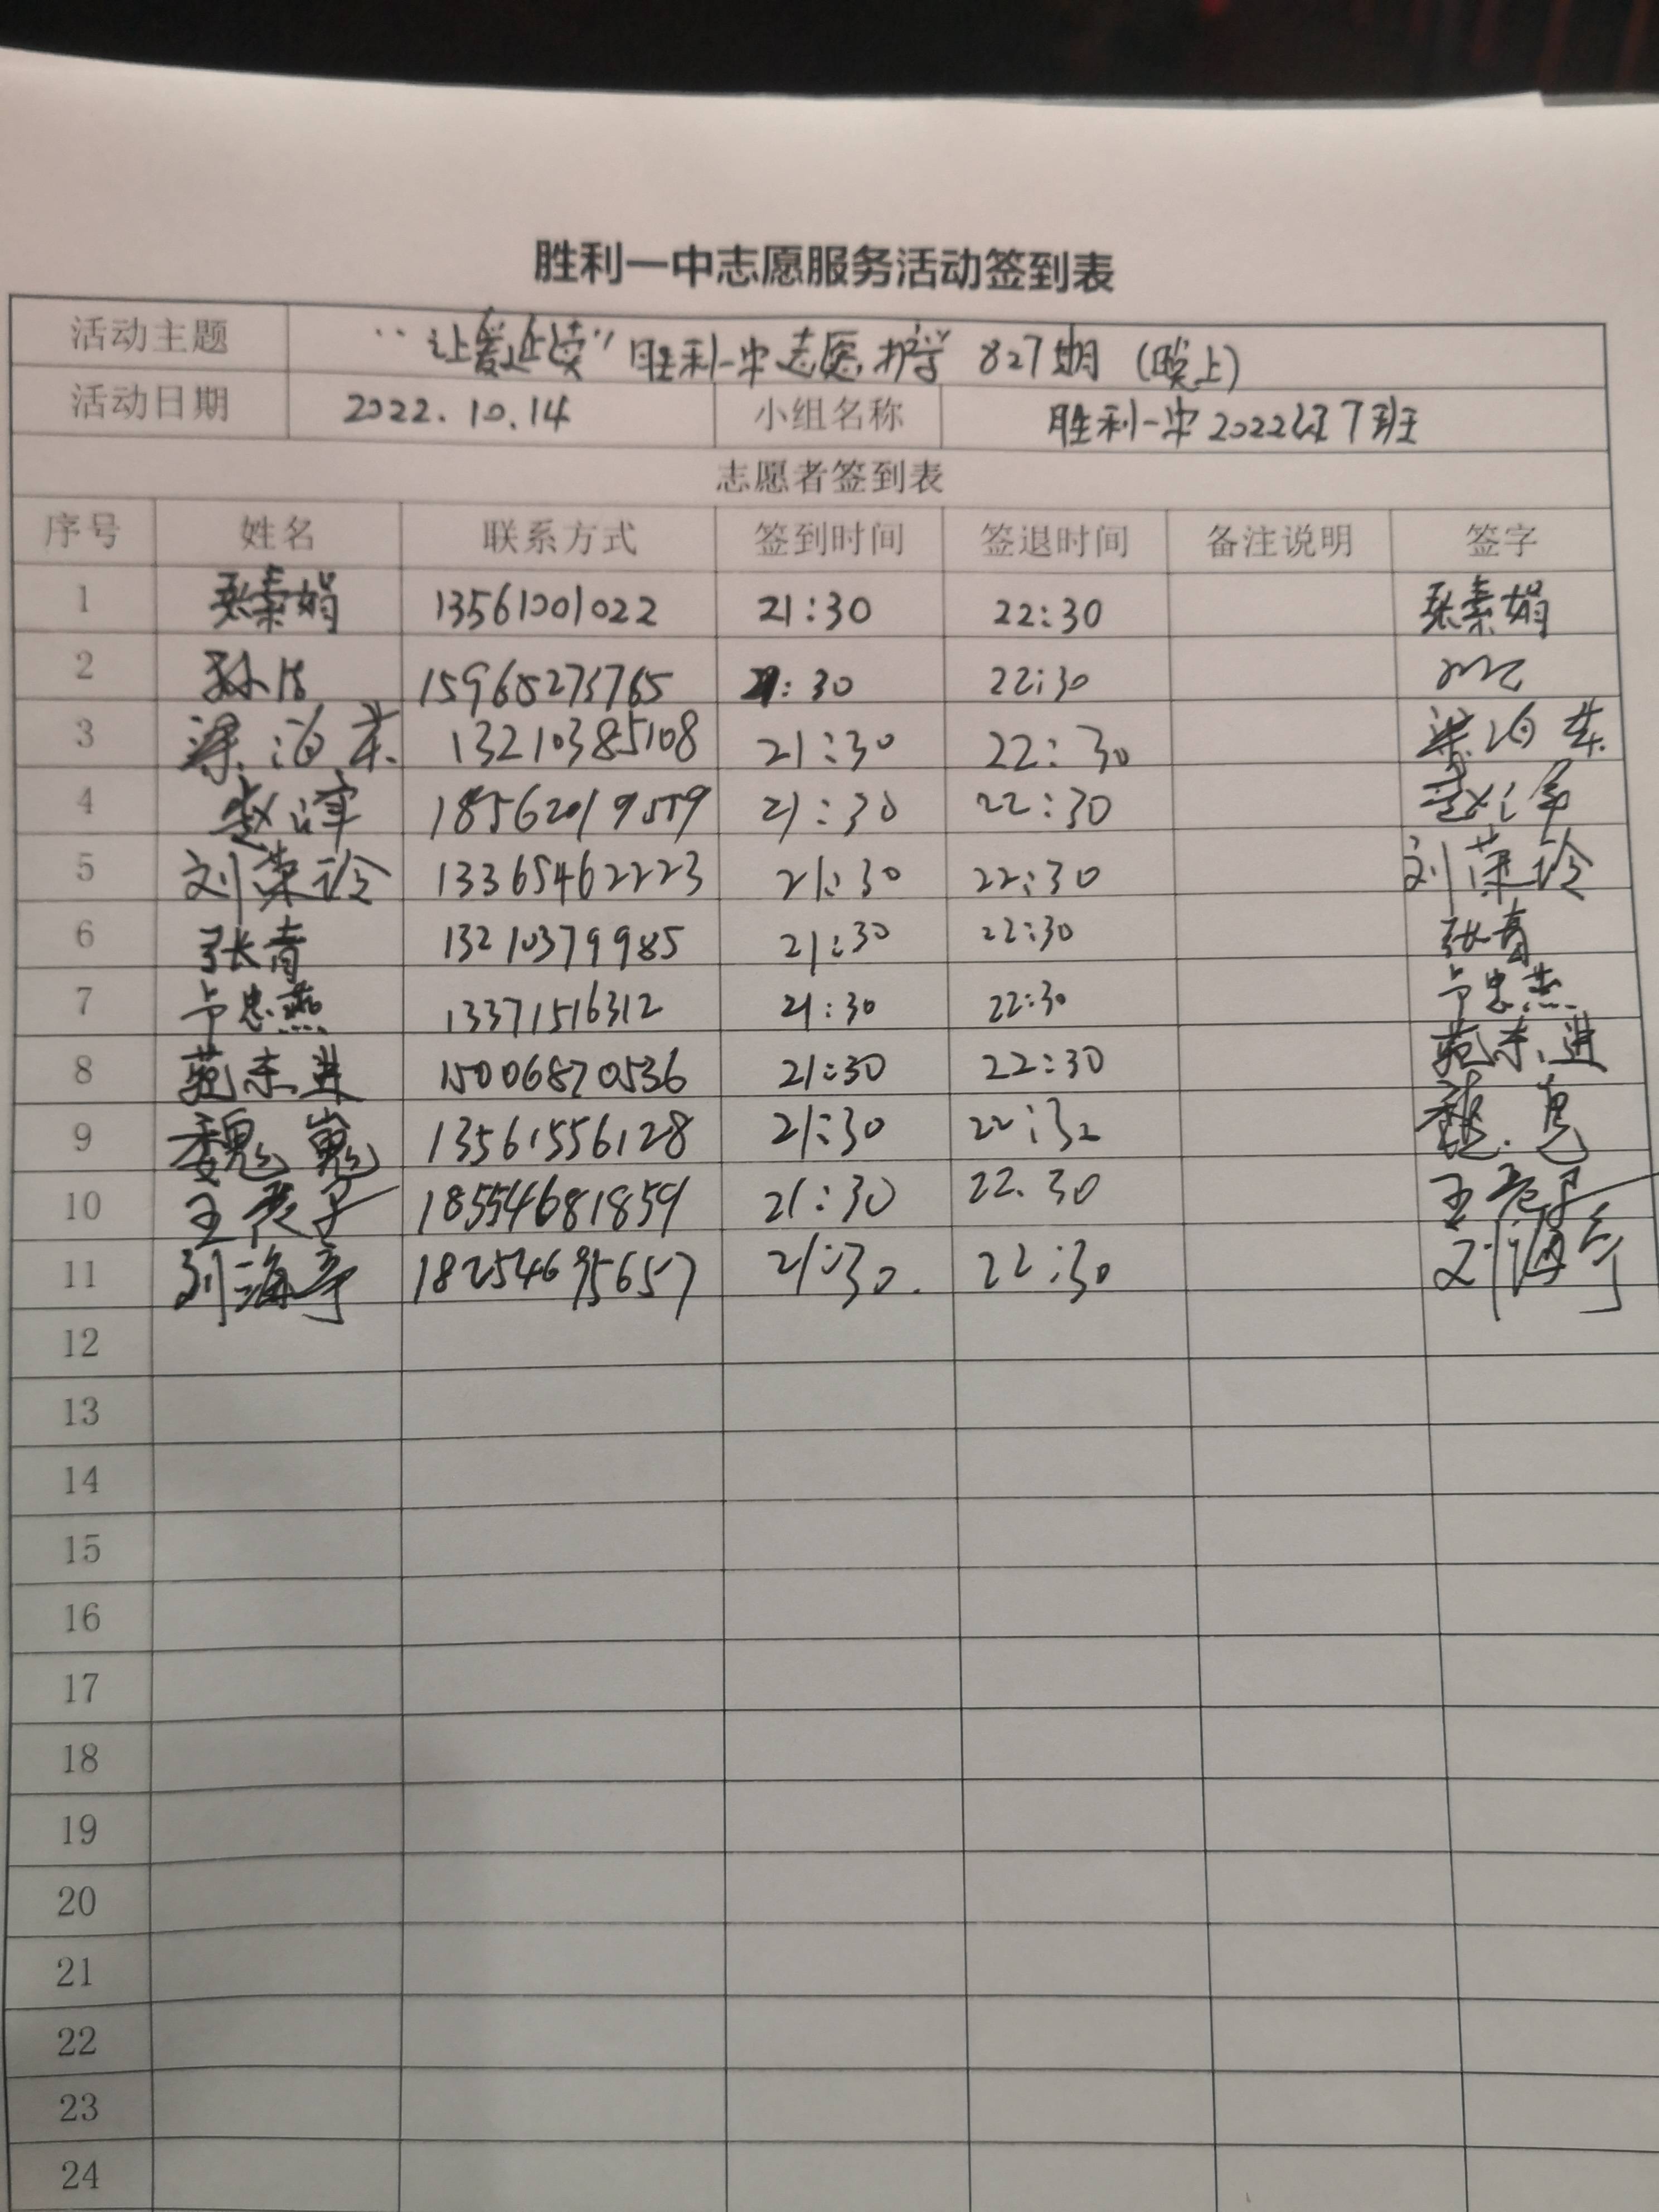 胜利一中志愿服务活动签到表
活动主题 “让爱延续”胜利一中志愿护学 827期 (晚上)
活动日期 2022.10.14 小组名称 胜利一中2022级7班
志愿者签到表
序号 姓名 联系方式 签到时间 签退时间 备注说明 签字
1 张素娟 13561001022 21:30 22:30 张素娟
2 孙 15965273765 21:30 22:30
3 梁海东 13210385108 21:30 22:30 梁海东
4 赵 18562019559 21:30 22:30 赵
5 刘荣玲 13365462223 21:30 22:30 刘荣玲
6 张青 13210379985 21:30 22:30 张青
7 卢忠燕 13371516312 21:30 22:30 卢忠燕
8 15006870536 21:30 22:30
9 魏嵬 13561556128 21:30 22:30 魏嵬
10 王 子 18554681859 21:30 22.30 王 子
11 刘海亭 18254695657 21:30. 22:30 刘海亭
12
13
14
15
16
17
18
19
20
21
22
23
24